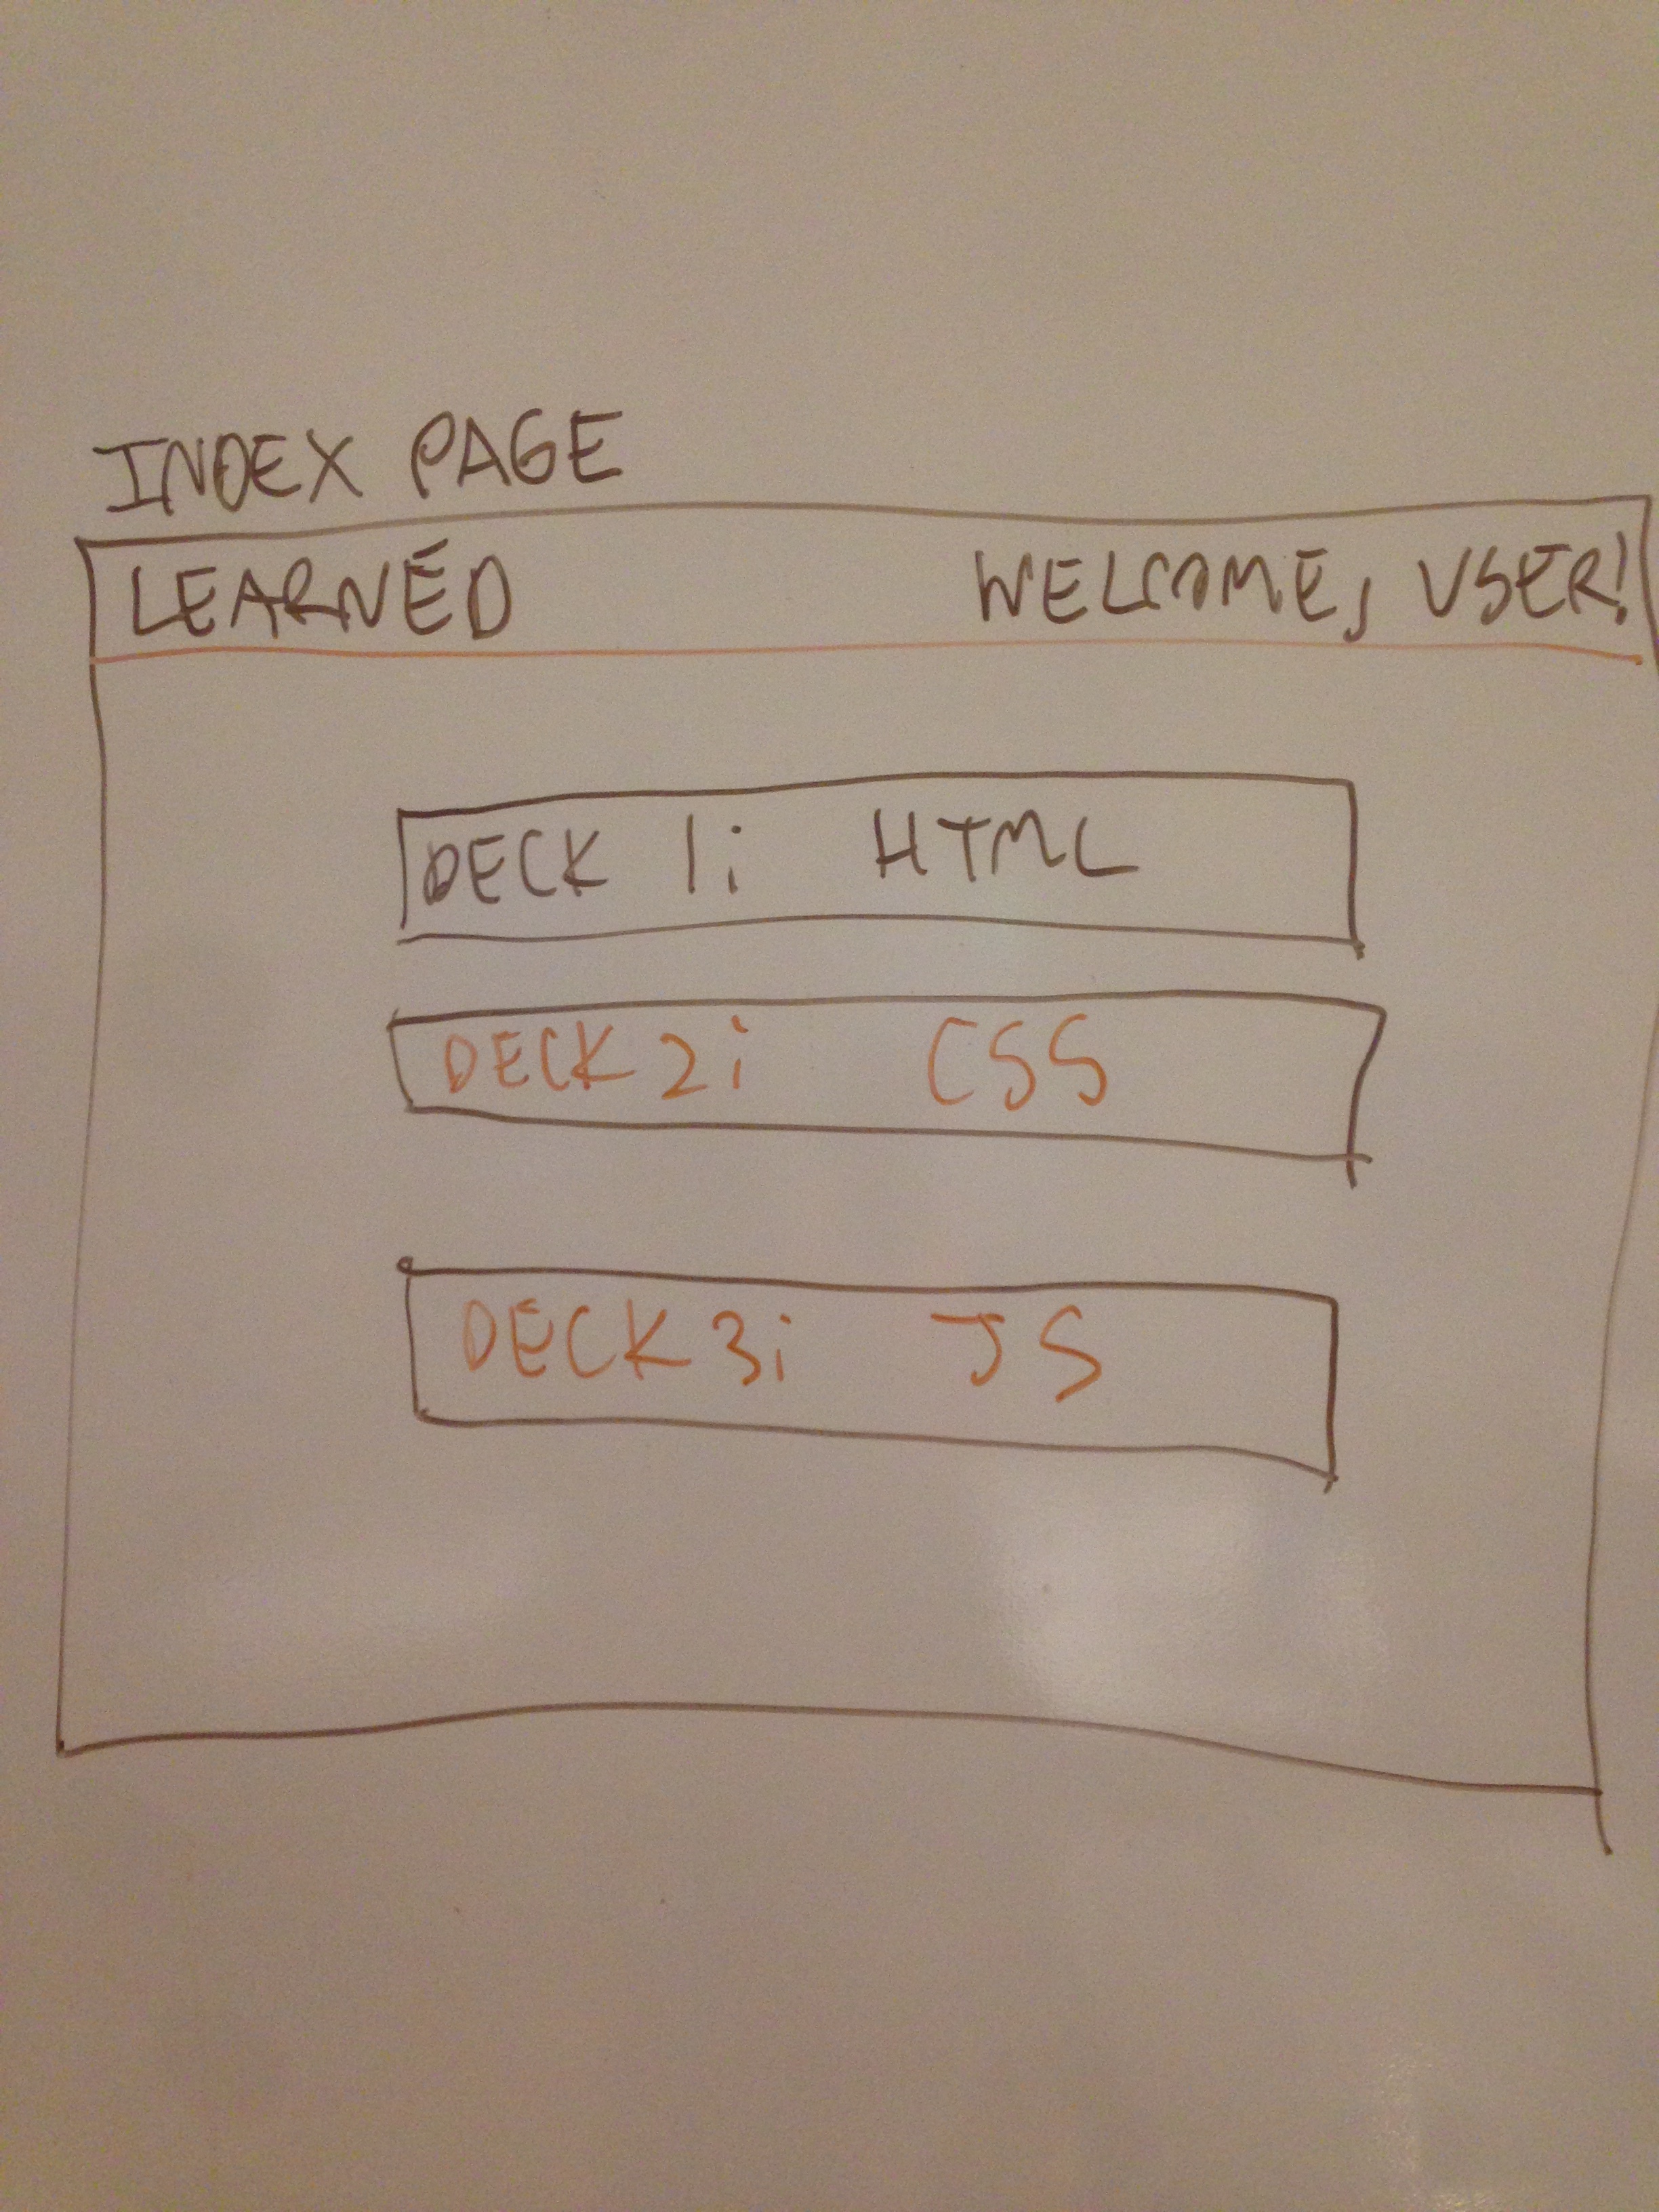 INDEX PAGE
LEARNÉD WELCOME, USER!
DECK 1: HTML
DECK 2: CSS
DECK 3: JS